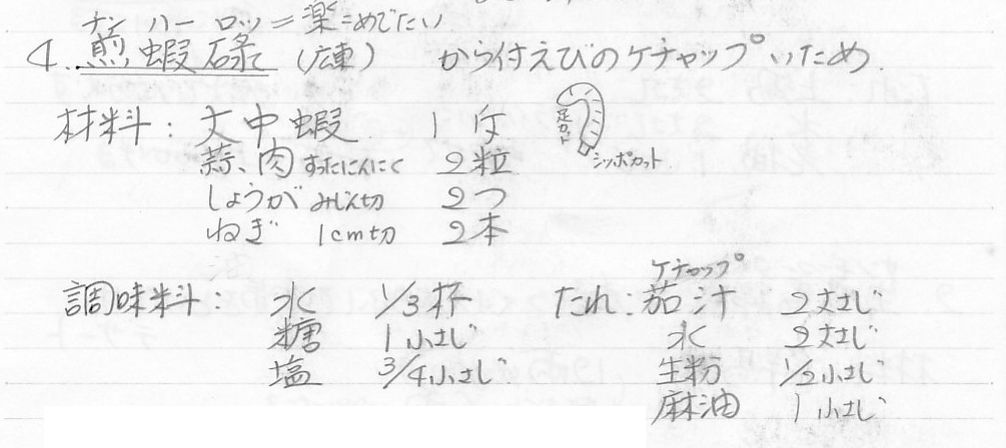 チン ハー ロッ＝楽＝めでたい
4. 煎蝦碌 (広東) から付えびのケチャップいため
材料: 大中蝦 1斤
足カット
シッポカット
蒜肉 すったにんにく 2粒
しょうが みじん切 2つ
ねぎ 1cm切 2本
ケチャップ
調味料: 水 1/3杯 たれ: 茄汁 2大さじ
糖 1小さじ 水 2大さじ
塩 3/4小さじ 生粉 1/2小さじ
麻油 1小さじ